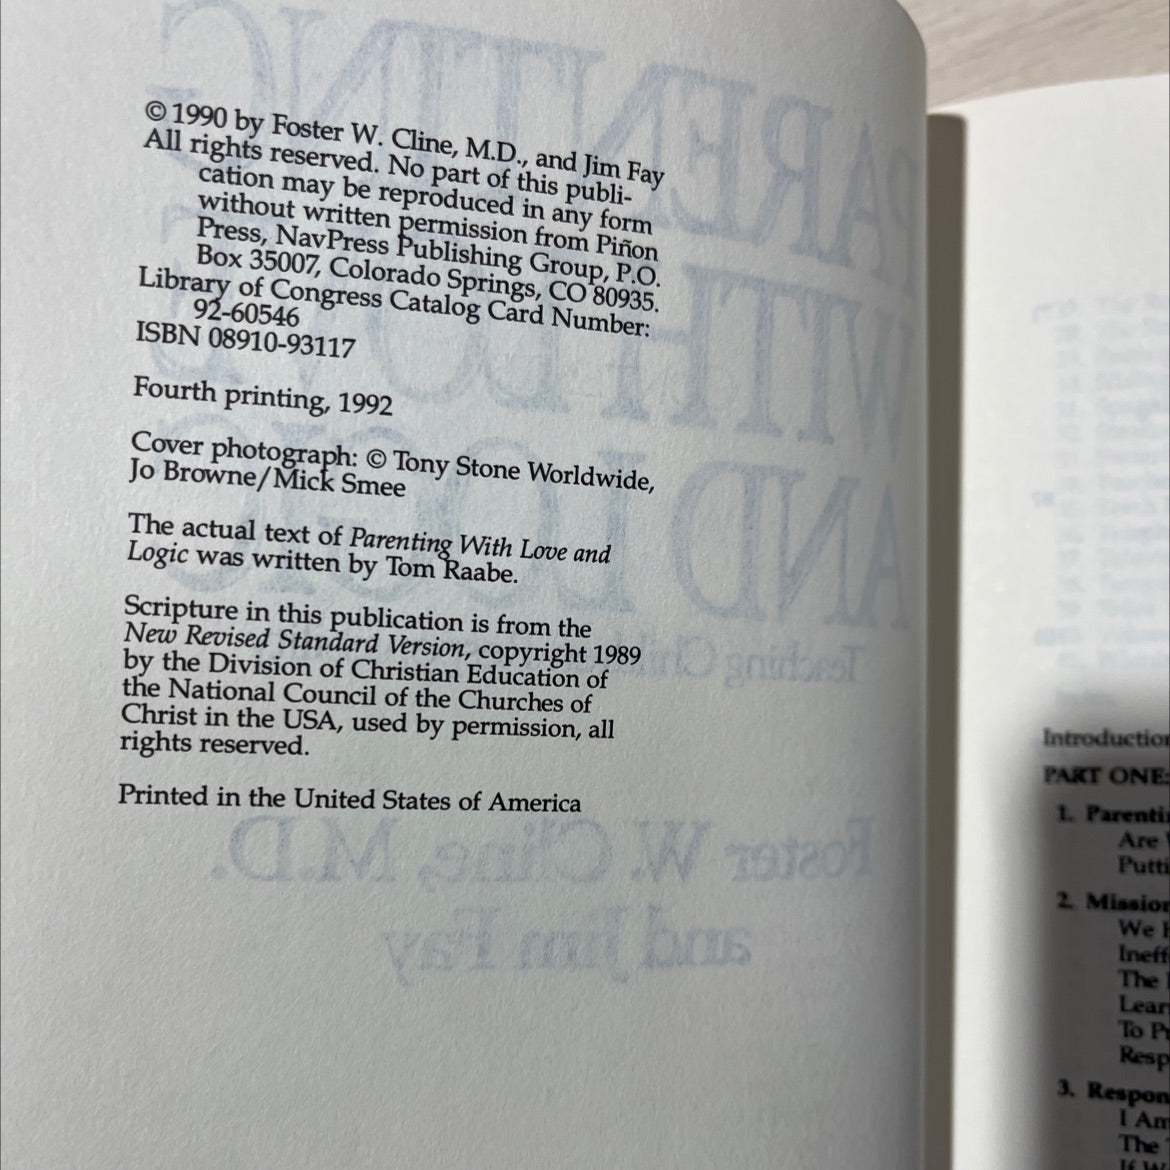 © 1990 by Foster W. Cline, M.D., and Jim Fay
All rights reserved. No part of this publi-
cation may be reproduced in any form
without written permission from Piñon
Press, NavPress Publishing Group, P.O.
Box 35007, Colorado Springs, CO 80935.
Library of Congress Catalog Card Number:
92-60546
ISBN 08910-93117
Fourth printing, 1992
Cover photograph: © Tony Stone Worldwide,
Jo Browne/Mick Smee
The actual text of Parenting With Love and
Logic was written by Tom Raabe.
Scripture in this publication is from the
New Revised Standard Version, copyright 1989
by the Division of Christian Education of
the National Council of the Churches of
Christ in the USA, used by permission, all
rights reserved.
Printed in the United States of America
PARENTING
WITH LOVE
AND LOGIC
Teaching Child
Foster W. Cline, M.D.
and Jim Fay
Introduction
PART ONE:
1. Parenti
Are
Putti
2. Mission
We
Ineff
The
Lear
To P
Resp
3. Respon
I Am
The
If